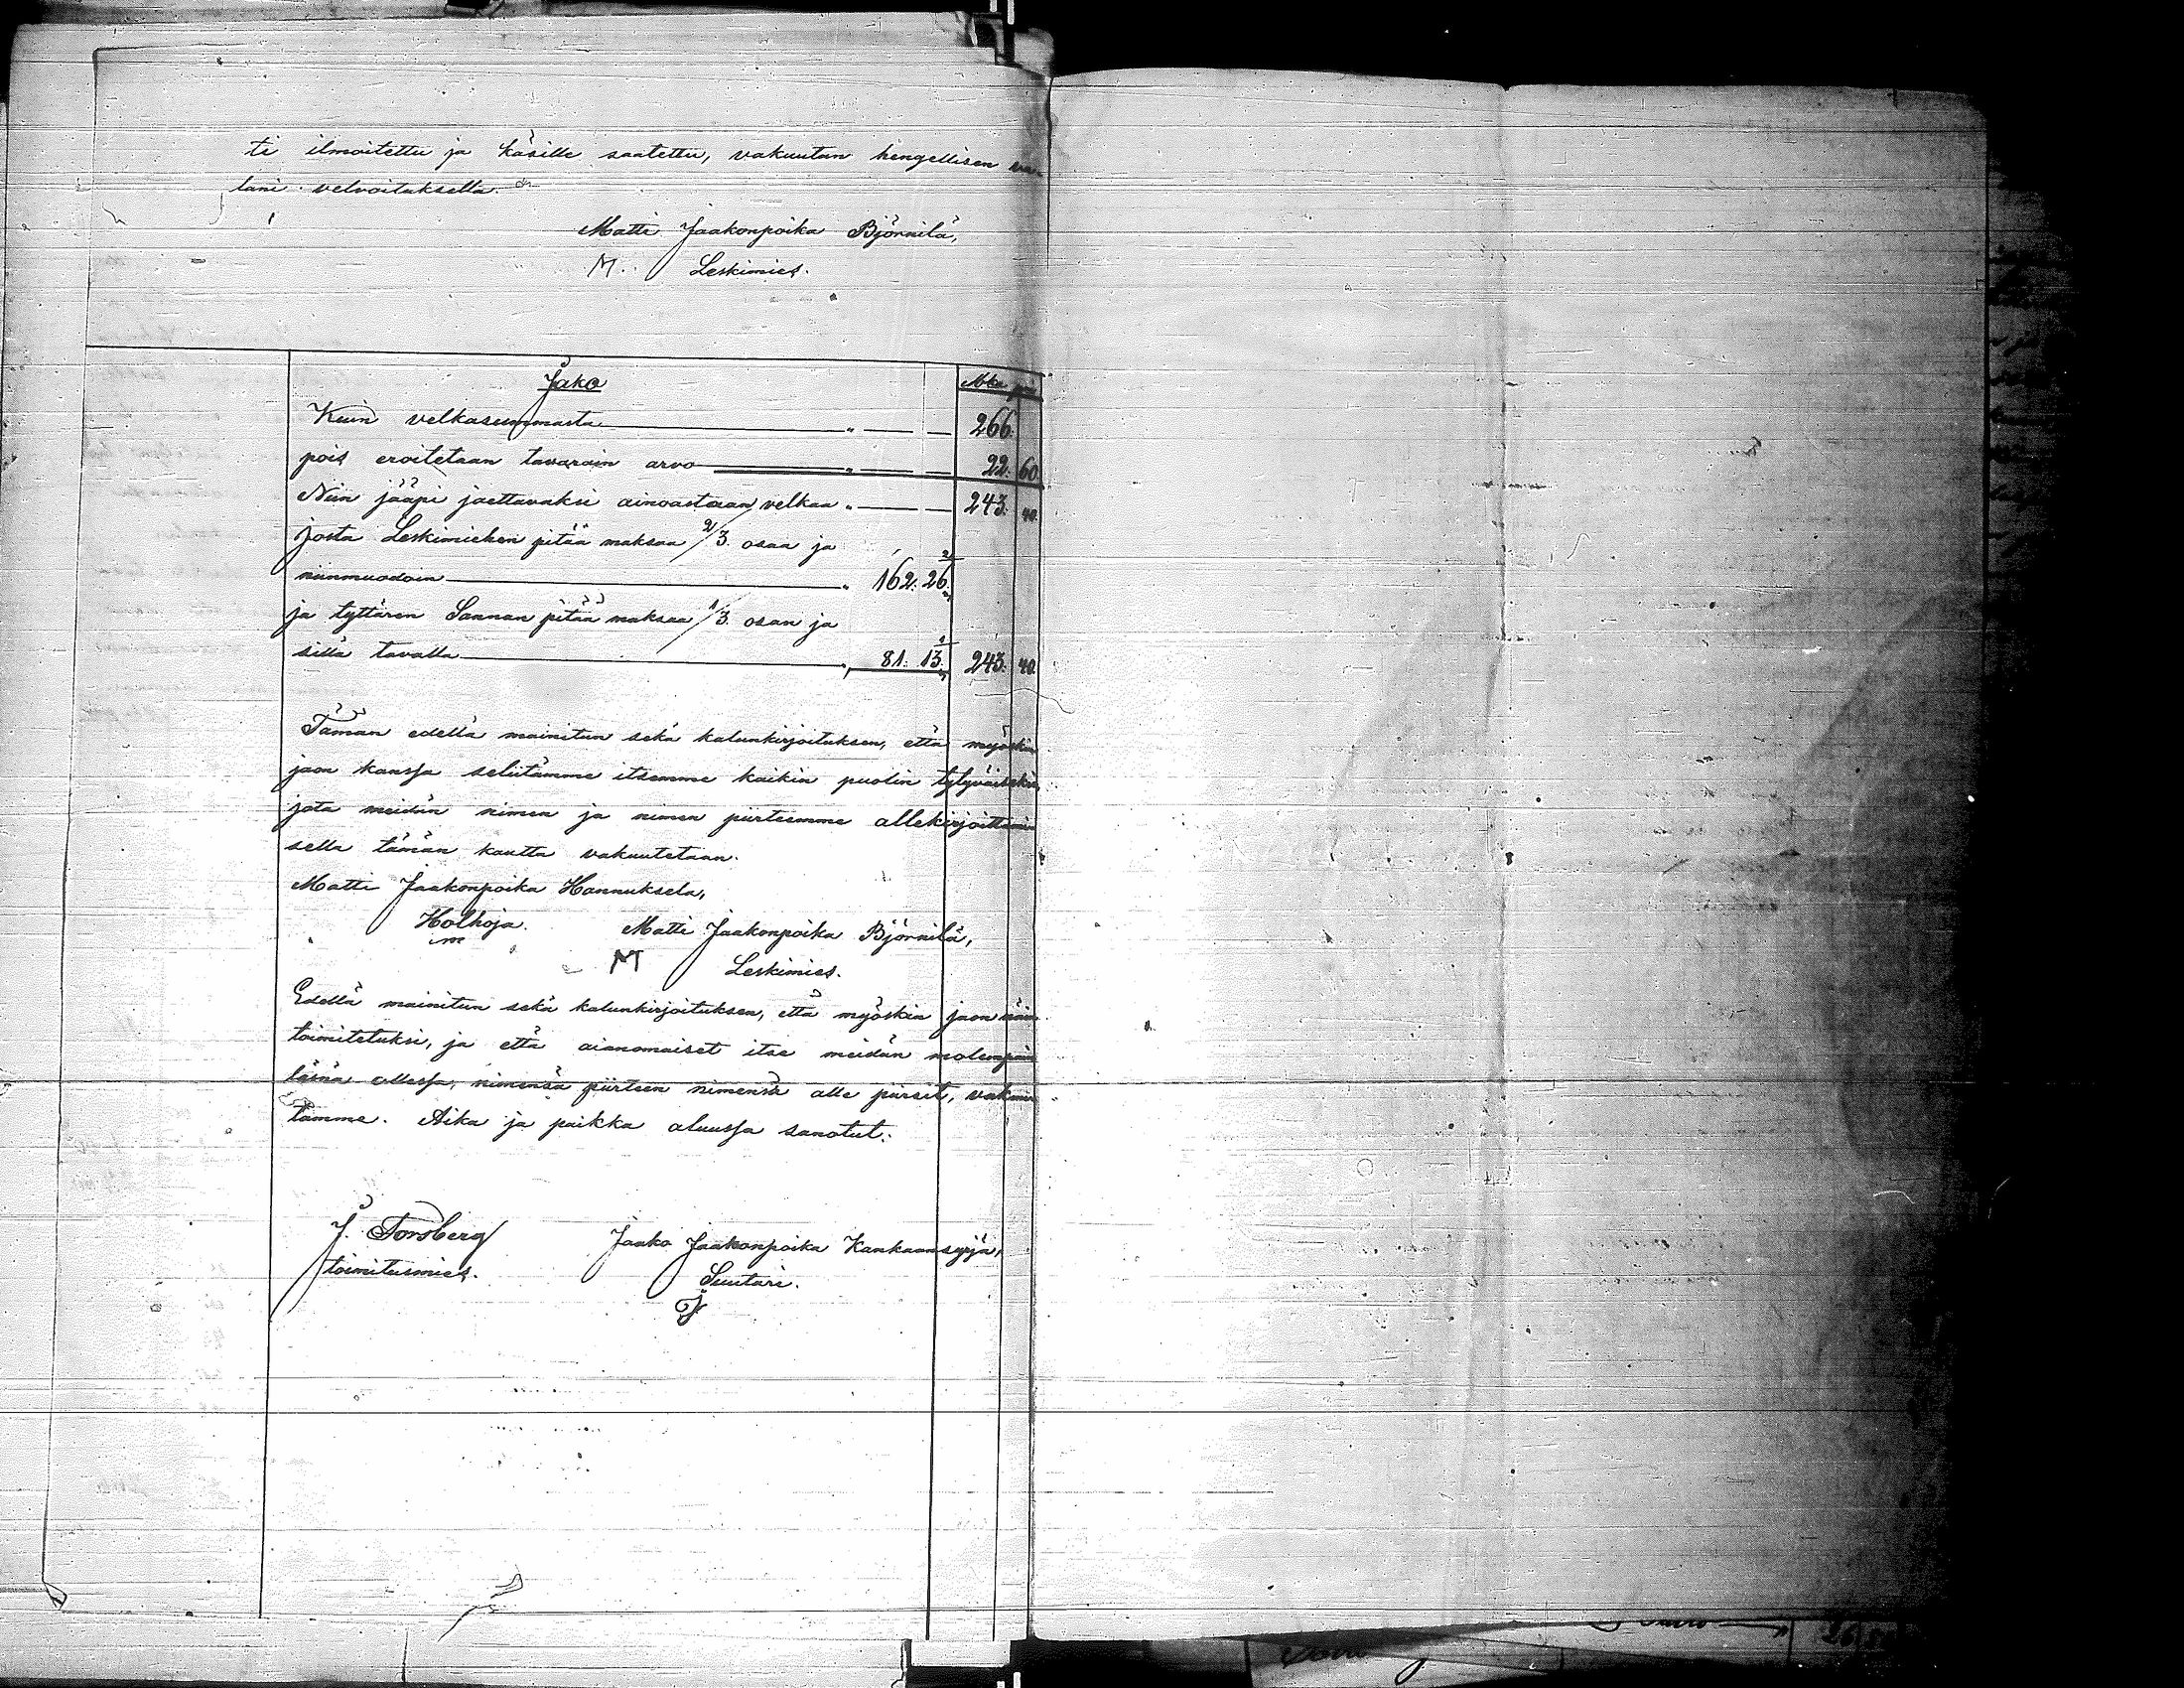 ti ilmoitettu ja käsille saatettu, vakuutan hengellisen va-
lani velvoituksella.
Matti Jaakonpoika Björnilä,
M. Leskimies.
Jako
Mka pni
Kuin velkasummasta " 266.
pois eroitetaan tavarain arvo " 22. 60.
Niin jääpi jaettavaksi ainoastaan velkaa " 243. 40.
josta Leskimiehen pitää maksaa 2/3. osaa ja
niinmuodoin " 162. 26 2/3
ja tyttären Sannan pitää maksaa 1/3. osan ja
sillä tavalla " 81. 13 1/3 243. 40.
Tämän edellä mainitun sekä kalunkirjoituksen, että myöskin
jaon kanssa seliitämme itsemme kaikin puolin tytyväiseksi
jota meidän nimen ja nimen piirteemme allekirjoittamis
sella tämän kautta vakuutetaan.
Matti Jaakonpoika Hannuksela,
Holhoja.
Matti Jaakonpoika Björnilä,
M Leskimies.
Edellä mainitun sekä kalunkirjoituksen, että myöskin jaon näin
toimitetuksi, ja että aianomaiset itse meidän molempain
läsnä ollessa, nimensä piirteen nimensä alle piirsit, vakuu
tamme. Aika ja paikka aluussa sanotut.
J. Forsberg
toimitusmies.
Jaako Jaakonpoika Kankaansyrjä,
Suutari.